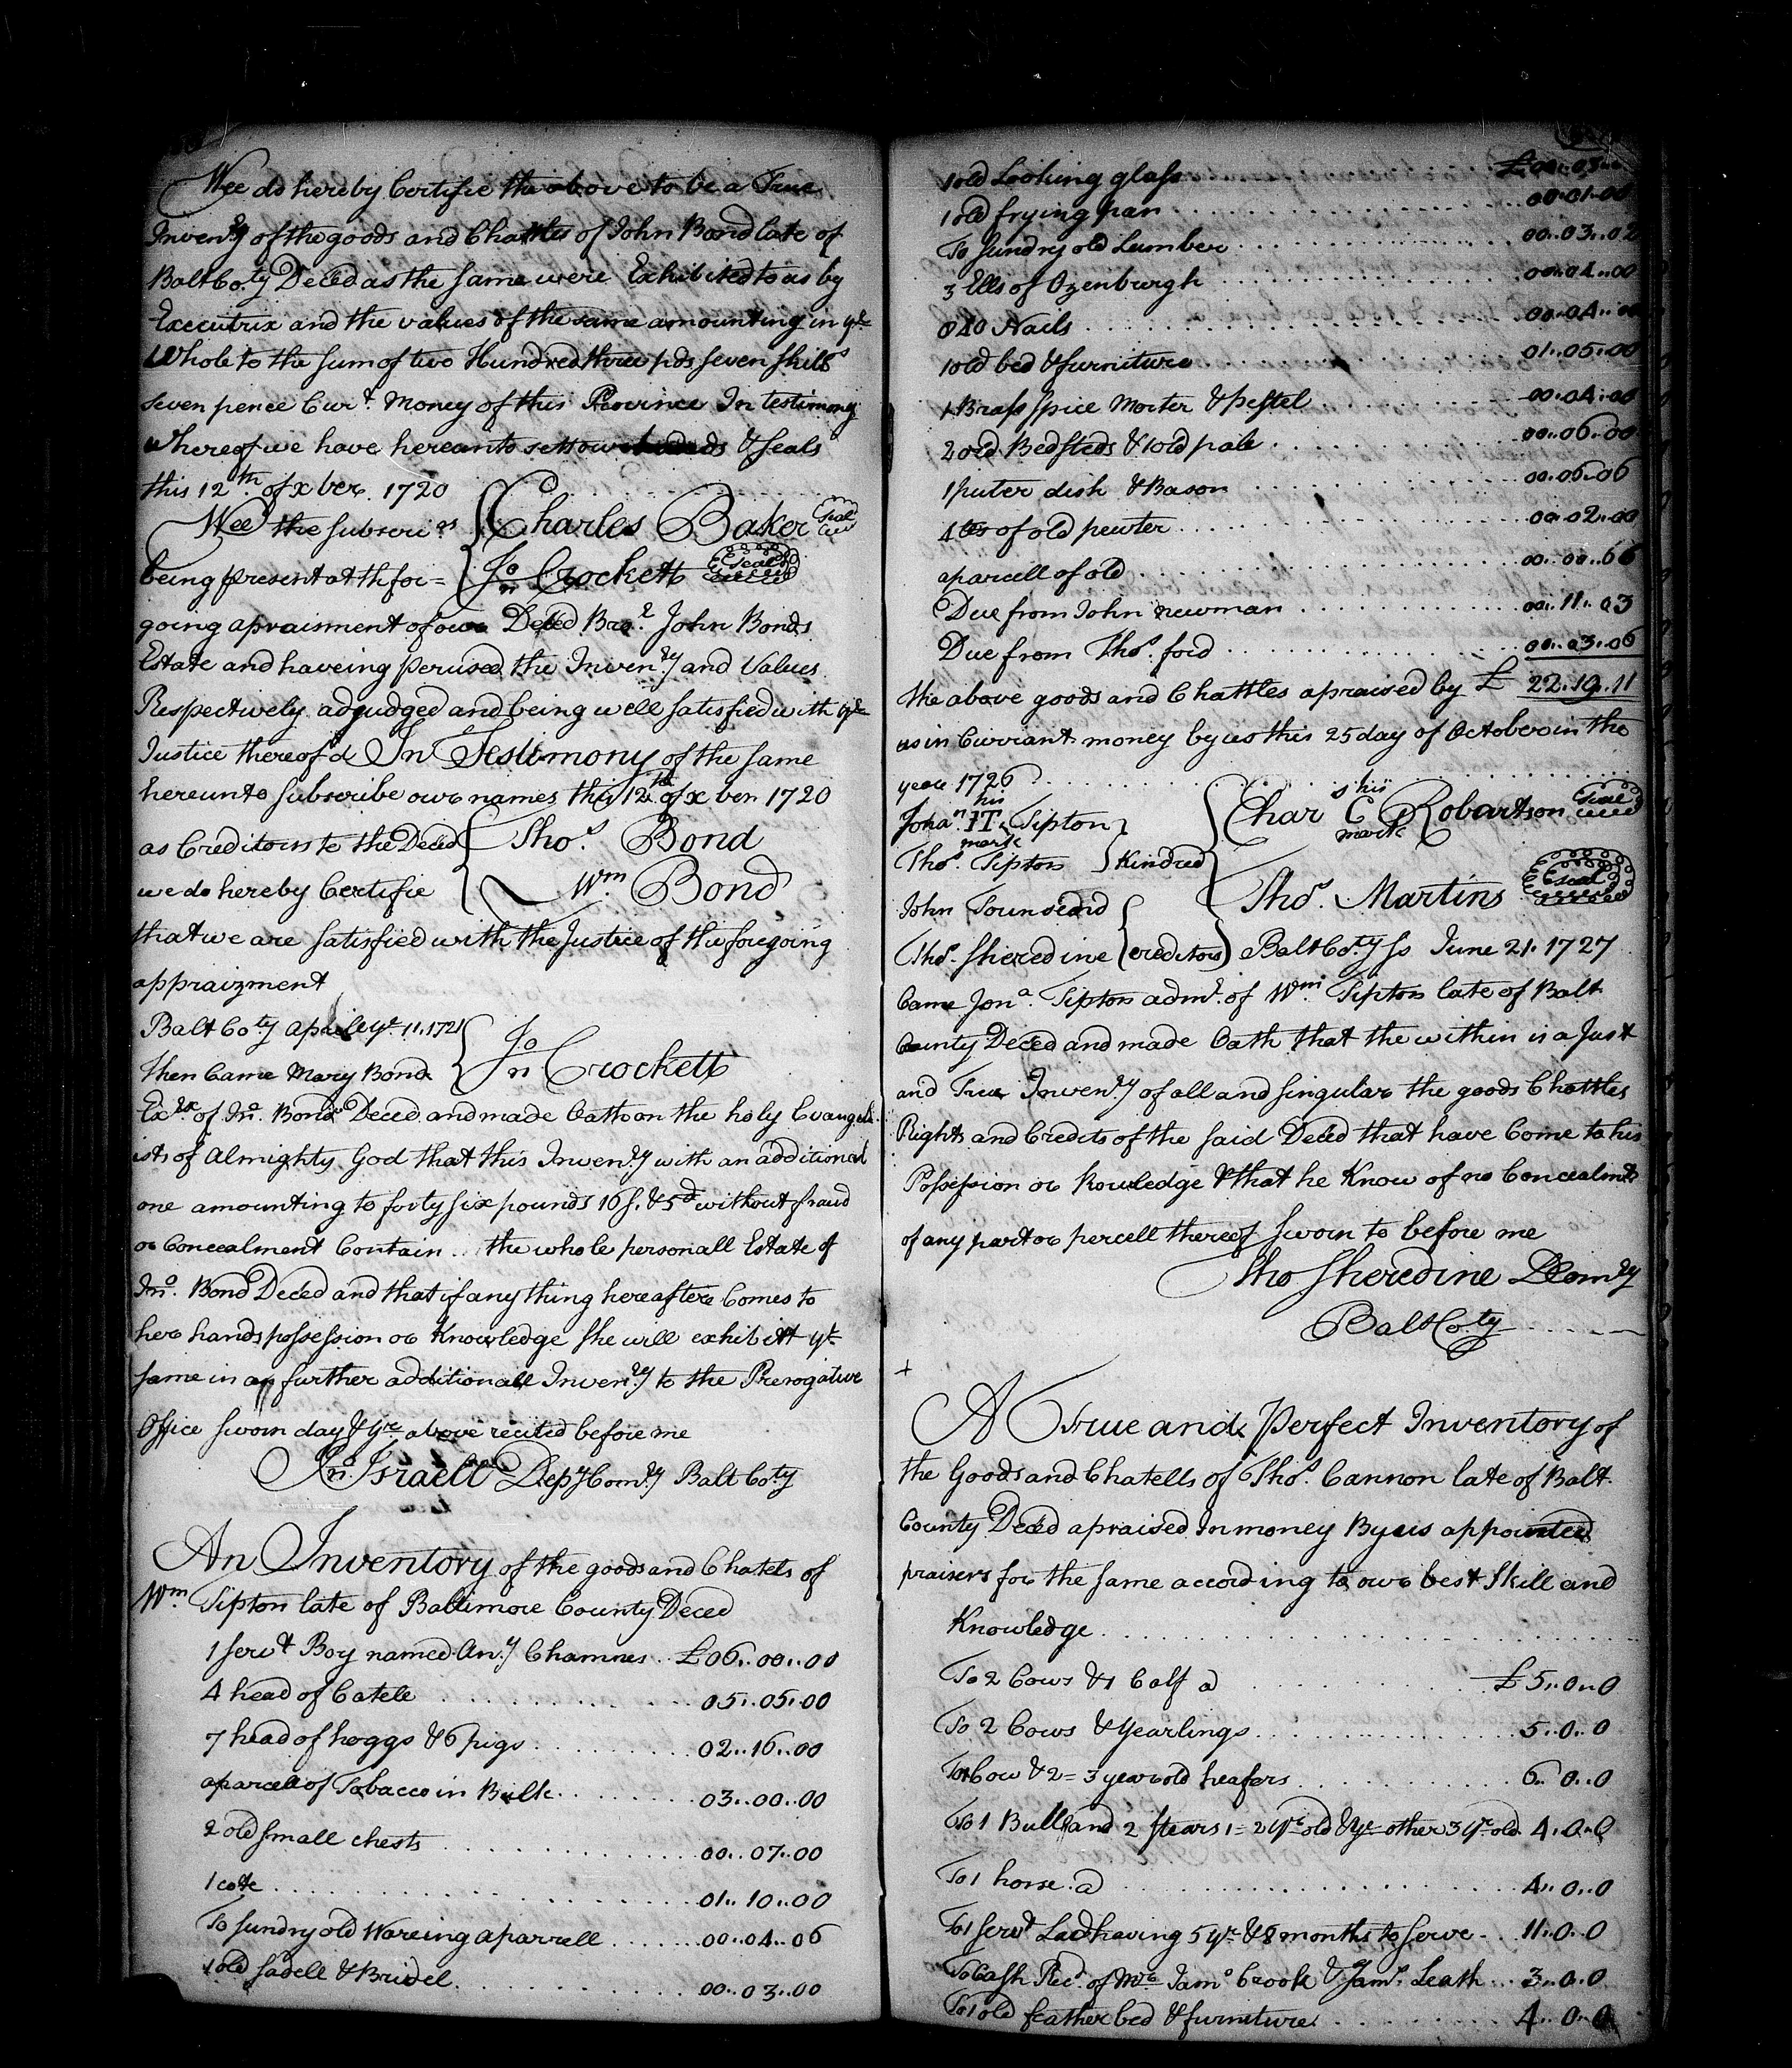 Wee do hereby Certifie the above to be a True
Inven:ry of the goods and Chattles of John Bond late of
Balt Co:ty Deced as the same were Exhibited to us by
Executrix and the values of the same amounting in ye
Whole to the sum of two Hundred three pds seven shills
seven pence Curt. Money of this Province In testimony
whereof we have hereunto sett our hands & seals
this 12th of x ber. 1720
Wee the subscri:rs { Charles Baker Seal
being present at th for= { Jo n Crockett Seal
going apraisment of our Deced Bror John Bonds
Estate and haveing perused the Inven:ry and Values
Respectively adgudged and being well satisfied with ye
Justice thereof d In Testimony of the same
hereunto subscribe our names this 12th of x ber 1720
as Creditors to the Deced { Thos. Bond
we do hereby Certifie { Wm Bond
that we are satisfied with the Justice of the foregoing
appraizment
Balt Co:ty aprile ye 11. 1721 { Jo n Crockett
Then Came Mary Bond
Exrx of Jno. Bond Deced and made Oath on the holy Evangel
ists of Almighty God that this Inven:ry with an additional
one amounting to forty six pounds 16 s. & 5d without fraud
or Concealment Contain .. the whole personall Estate of
Jno. Bond Deced and that if any thing hereafter Comes to
her hands possession or Knowledge she will exhibitt ye
same in an further additionall Inven:ry to the Prerogative
Office sworn day & yr above recited before me
Jno. Israell Depy Com:ry Balt Co:ty
An Inventory of the goods and Chatels of
Wm Tipton late of Baltimore County Deced
1 servt Boy named An:y Chamnes .. £ 06..00..00
4 head of Catele . . . 05..05..00
7 head of hoggs & 6 pigs . . . 02..16..00
a parcell of Tobacco in Bulk . . . 03..00..00
2 old small chests . . . 00..07..00
1 cote . . . 01..10..00
To sundry old Wareing aparrell . . . 00..04..06
1 old sadell & Bridel . . . 00..03..00
1 old Looking glass . . . £ 00..03..
1 old frying pan . . . 00..01..00
To sundry old Lumber . . . 00..03..02
3 Ells of Ozenburgh . . . 00..04..00
Nails . . . 00..04..00
1 old bed & furniture . . . 01..05..00
1 Brass spice Morter & pestel . . . 00..04..00
2 old Bedsteds & 1 old pale . . . 00..06..00
1 puter dish & Bason . . . 00..06..06
4 lbs of old pewter . . . 00..02..00
a parcell of old . . . 00..00..06
Due from John newman . . . 00..11..03
Due from Thos. ford . . . 00..03..06
the above goods and Chattles apraised by £ 22..19..11
us in Currant money by us this 25 day of October in the
year 1726
Johan. his IT mark Tipton } Chars his C mark Robartson Seal
Thos. Tipton } Kindred
John Townseand { Thos. Martins Seal
Thos. Sheredine { creditors } Balt Co:ty ss June 21. 1727
Came Jona. Tipton admr. of Wm Tipton late of Balt
County Deced and made Oath that the within is a Just
and True Inven:ry of all and singular the goods Chattles
Rights and Credits of the said Deced that have Come to his
Possession or knowledge & that he Know of no Concealmt
of any part or percell thereof sworn to before me
Tho Sheredine D Com:ry
Balt Co:ty
+
A True and Perfect Inventory of
the Goods and Chatells of Thos. Cannon late of Balt
County Deced apraised In money By us appointed
praisers for the same according to our best Skill and
Knowledge . . .
To 2 Cows & 1 Calf a . . . £ 5..0..0
To 2 Cows & yearlings . . . 5..0..0
To 1 Cow & 2= 3 year old heafers . . . 6..0..0
To 1 Bull and 2 stears 1= 2 yr old & ye other 3 yr old. 4..0..0
To 1 horse. a . . . 4..0..0
To 1 servt Lad having 5 yr & 8 months to serve .. 11..0..0
To Cash Recd. of Mr Jams Crook & Jams. Leath .. 3..0..0
To 1 old feather bed & furniture . . . 4..0..0